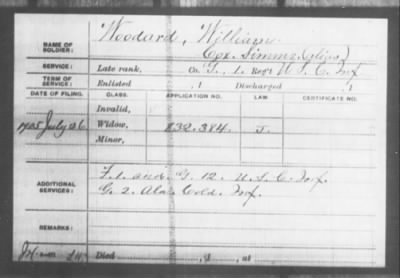 Woodard, William
NAME OF SOLDIER: Cox, Simms (alias)
SERVICE: Late rank, Co. G, 1 Reg't U.S.C. Inf
TERM OF SERVICE: Enlisted , 1 Discharged , 1
DATE OF FILING. CLASS. APPLICATION NO. LAW. CERTIFICATE NO.
Invalid,
1905 July 26 Widow, 832.384 J.
Minor,
ADDITIONAL SERVICES: F. 1. and G. 12. U.S.C. Inf.
G. 2. Ala. Cold. Inf.
REMARKS:
Died , 1 , at